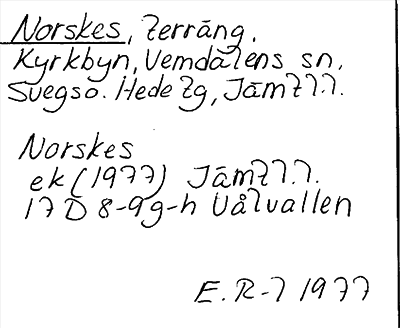 Norskes, terräng.
Kyrkbyn, Vemdalens sn,
Svegs o. Hede tg, Jämtl.l.
Norskes
ek (1977) Jämtl.l.
17D 8-9g-h Uålvallen
E.R-l 1977